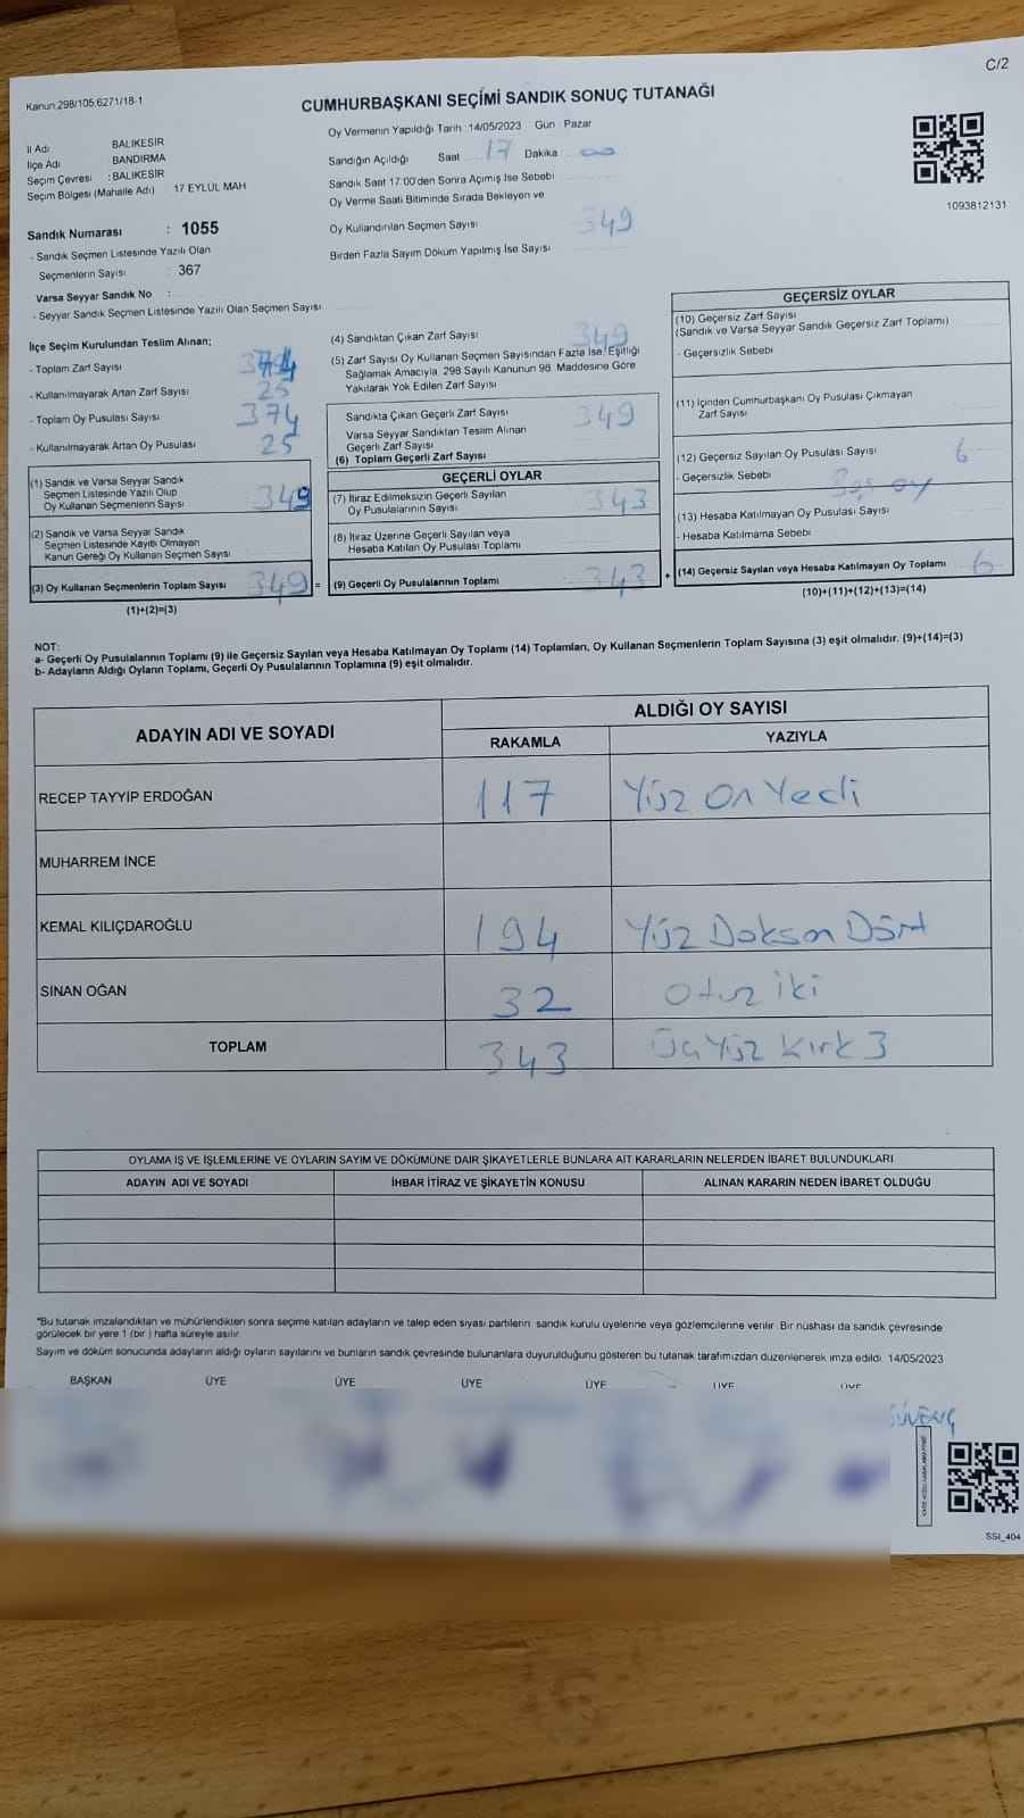 C/2
Kanun:298/105,6271/18-1
CUMHURBAŞKANI SEÇİMİ SANDIK SONUÇ TUTANAĞI
İl Adı : BALIKESİR
İlçe Adı BANDIRMA
Seçim Çevresi : BALIKESİR
Seçim Bölgesi (Mahalle Adı) 17 EYLÜL MAH
Sandık Numarası : 1055
- Sandık Seçmen Listesinde Yazılı Olan
Seçmenlerin Sayısı 367
Varsa Seyyar Sandık No :
- Seyyar Sandık Seçmen Listesinde Yazılı Olan Seçmen Sayısı
Oy Vermenin Yapıldığı Tarih :14/05/2023 Gün : Pazar
Sandığın Açıldığı Saat 17 Dakika : 00
Sandık Saat 17:00'den Sonra Açılmış İse Sebebi
Oy Verme Saati Bitiminde Sırada Bekleyen ve
Oy Kullandırılan Seçmen Sayısı 349
Birden Fazla Sayım Döküm Yapılmış İse Sayısı
1093812131
İlçe Seçim Kurulundan Teslim Alınan;
- Toplam Zarf Sayısı 374
- Kullanılmayarak Artan Zarf Sayısı 25
- Toplam Oy Pusulası Sayısı 374
- Kullanılmayarak Artan Oy Pusulası 25
(1) Sandık ve Varsa Seyyar Sandık
Seçmen Listesinde Yazılı Olup
Oy Kullanan Seçmenlerin Sayısı 349
(2) Sandık ve Varsa Seyyar Sandık
Seçmen Listesinde Kayıtlı Olmayan
Kanun Gereği Oy Kullanan Seçmen Sayısı
(3) Oy Kullanan Seçmenlerin Toplam Sayısı 349 =
(1)+(2)=(3)
(4) Sandıktan Çıkan Zarf Sayısı 349
(5) Zarf Sayısı Oy Kullanan Seçmen Sayısından Fazla İse, Eşitliği
Sağlamak Amacıyla 298 Sayılı Kanunun 98. Maddesine Göre
Yakılarak Yok Edilen Zarf Sayısı
Sandıkta Çıkan Geçerli Zarf Sayısı 349
Varsa Seyyar Sandıktan Teslim Alınan
Geçerli Zarf Sayısı
(6) Toplam Geçerli Zarf Sayısı
GEÇERLİ OYLAR
(7) İtiraz Edilmeksizin Geçerli Sayılan
Oy Pusulalarının Sayısı 343
(8) İtiraz Üzerine Geçerli Sayılan veya
Hesaba Katılan Oy Pusulası Toplamı
(9) Geçerli Oy Pusulalarının Toplamı 343 +
GEÇERSİZ OYLAR
(10) Geçersiz Zarf Sayısı
(Sandık ve Varsa Seyyar Sandık Geçersiz Zarf Toplamı)
- Geçersizlik Sebebi
(11) İçinden Cumhurbaşkanı Oy Pusulası Çıkmayan
Zarf Sayısı
(12) Geçersiz Sayılan Oy Pusulası Sayısı 6
- Geçersizlik Sebebi
(13) Hesaba Katılmayan Oy Pusulası Sayısı
- Hesaba Katılmama Sebebi
(14) Geçersiz Sayılan veya Hesaba Katılmayan Oy Toplamı 6
(10)+(11)+(12)+(13)=(14)
NOT:
a- Geçerli Oy Pusulalarının Toplamı (9) ile Geçersiz Sayılan veya Hesaba Katılmayan Oy Toplamı (14) Toplamları, Oy Kullanan Seçmenlerin Toplam Sayısına (3) eşit olmalıdır. (9)+(14)=(3)
b- Adayların Aldığı Oyların Toplamı, Geçerli Oy Pusulalarının Toplamına (9) eşit olmalıdır.
ADAYIN ADI VE SOYADI
ALDIĞI OY SAYISI
RAKAMLA YAZIYLA
RECEP TAYYİP ERDOĞAN 117 Yüz On Yedi
MUHARREM İNCE
KEMAL KILIÇDAROĞLU 194 Yüz Doksan Dört
SİNAN OĞAN 32 Otuz iki
TOPLAM 343 ÜçYüz Kırk 3
OYLAMA İŞ VE İŞLEMLERİNE VE OYLARIN SAYIM VE DÖKÜMÜNE DAİR ŞİKAYETLERLE BUNLARA AİT KARARLARIN NELERDEN İBARET BULUNDUKLARI
ADAYIN ADI VE SOYADI İHBAR İTİRAZ VE ŞİKAYETİN KONUSU ALINAN KARARIN NEDEN İBARET OLDUĞU
*Bu tutanak imzalandıktan ve mühürlendikten sonra seçime katılan adayların ve talep eden siyasi partilerin sandık kurulu üyelerine veya gözlemcilerine verilir. Bir nüshası da sandık çevresinde
görülecek bir yere 1 (bir ) hafta süreyle asılır.
Sayım ve döküm sonucunda adayların aldığı oyların sayılarını ve bunların sandık çevresinde bulunanlara duyurulduğunu gösteren bu tutanak tarafımızdan düzenlenerek imza edildi. 14/05/2023
BAŞKAN ÜYE ÜYE ÜYE ÜYE ÜYE ÜYE
GÜVENÇ
SSI_404